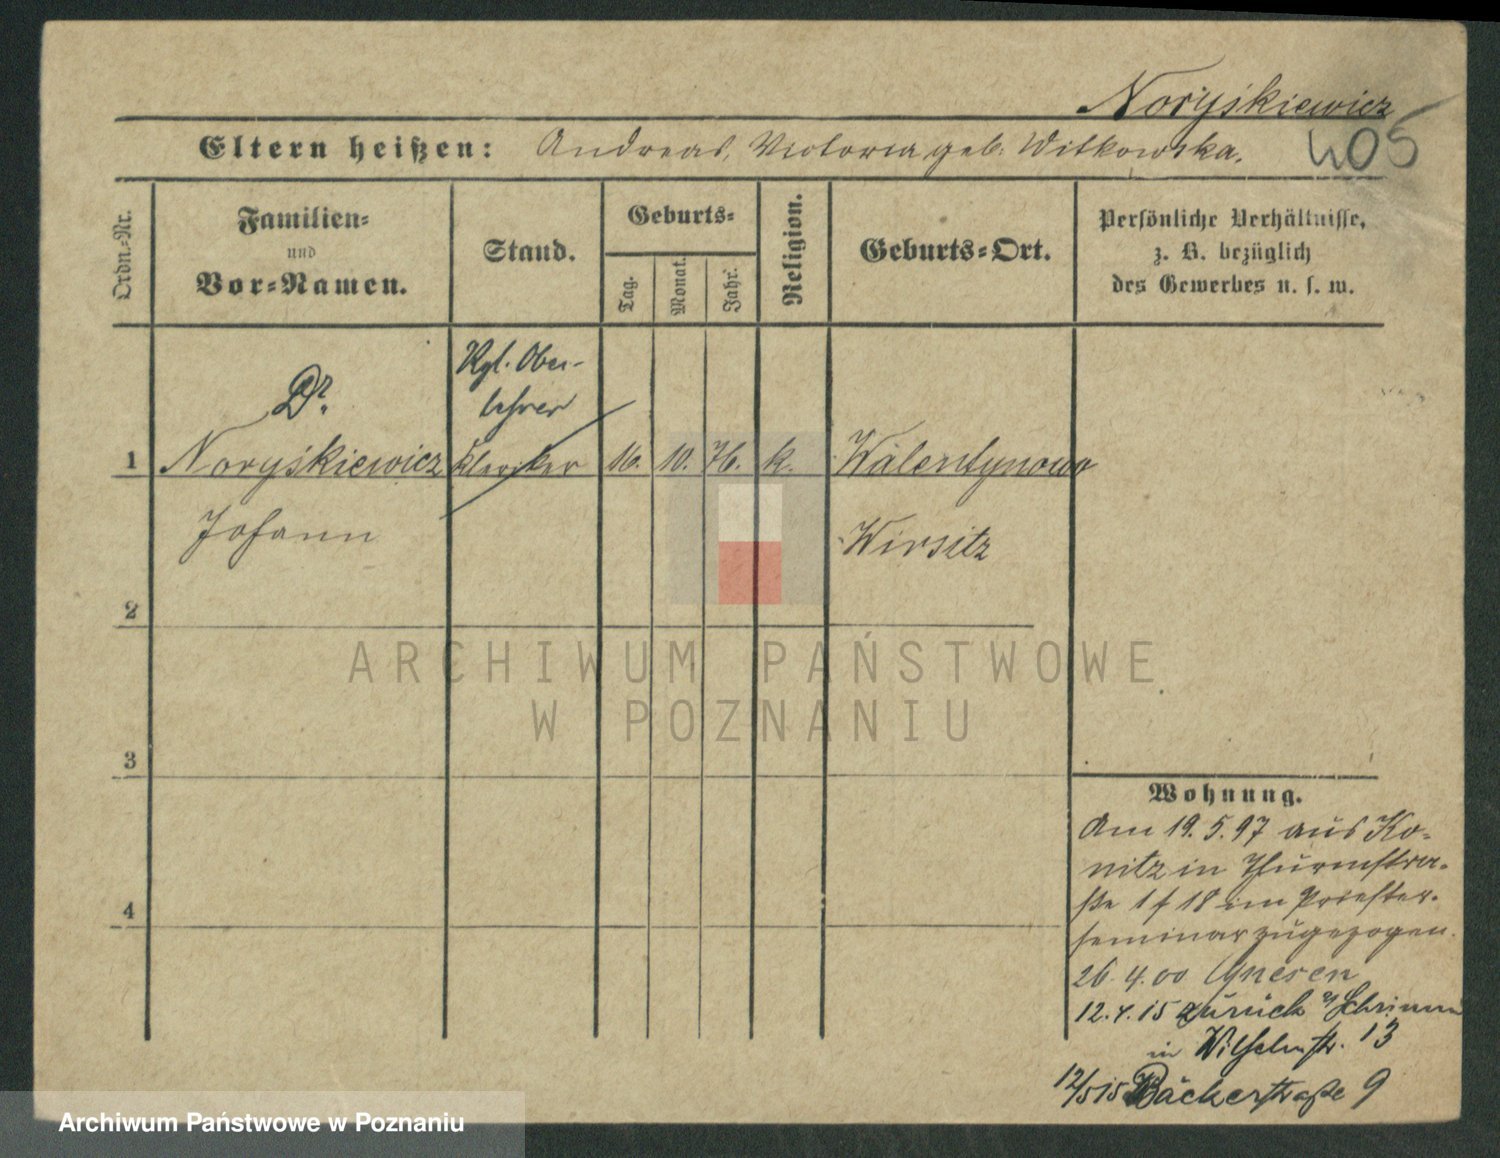 Noryśkiewicz
Eltern heißen: Andreas, Victoria geb. Witkowska.
405
Ordn.-Nr.
Familien-
und
Vor-Namen.
Stand.
Geburts-
Tag.
Monat.
Jahr.
Religion.
Geburts-Ort.
Persönliche Verhältnisse,
z. B. bezüglich
des Gewerbes u. s. w.
Kgl. Ober-
Dr.
lehrer
1 Noryśkiewicz Kleriker 16. 10. 76. k. Walentynowo
Johann Wirsitz
2
ARCHIWUM PAŃSTWOWE
W POZNANIU
3
Wohnung.
Am 19. 5. 97 aus Ko-
nitz in Thurmstra-
ße 1 f 18 im Priester-
seminar zugezogen.
4
26. 4. 00 Gnesen
12. 4. 15 zurück Schrimm
in Wilhelmstr. 13
12/5 15 Bäckerstraße 9
Archiwum Państwowe w Poznaniu